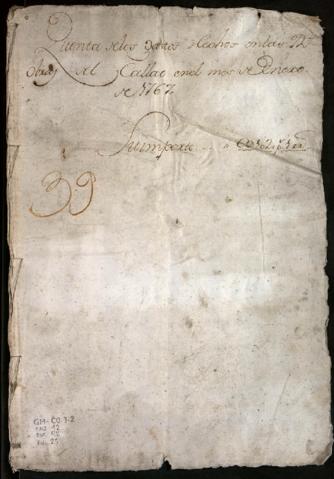 Quenta de los Gastos Hechos en las Rs
Obras del Callao en el mes de Enero
de 1767
Su importe
39
GM-CO 1-2